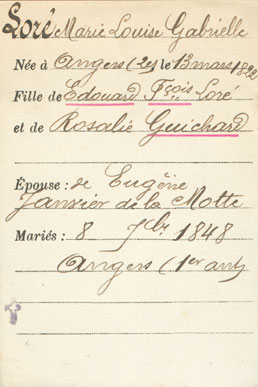 Loré Marie Louise Gabrielle
Née à Angers (2e) le 13 mars 1822
Fille de Edouard Fçois Loré
et de Rosalie Guichard
Épouse : de Eugène
Janvier de la Motte
Mariés : 8 7bre 1848
Angers (1er arrt)